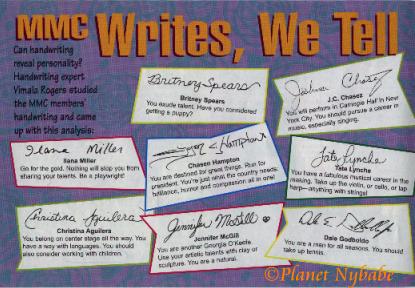 MMC Writes, We Tell
Can handwriting
reveal personality?
Handwriting expert
Vimala Rogers studied
the MMC members
handwriting and came
up with this analysis:
Britney Spears
Britney Spears
You exude talent. Have you considered
getting a puppy?
Joshua Chasez
J.C. Chasez
You will perform in Carnegie Hall in New
York City. You should pursue a career in
music, especially singing.
Ilana Miller
Ilana Miller
Go for the gold. Nothing will stop you from
sharing your talents. Be a playwright!
Hampton
Chasen Hampton
You are destined for great things. Run for
president. You're just what the country needs:
brilliance, humor and compassion all in one!
Tate Lynche
Tate Lynche
You have a fabulous musical career in the
making. Take up the violin, or cello, or lap
harp—anything with strings!
Christina Aguilera
Christina Aguilera
You belong on center stage all the way. You
have a way with languages. You should
also consider working with children.
Jennifer McGill
Jennifer McGill
You are another Georgia O'Keefe.
Use your artistic talents with clay or
sculpture. You are a natural.
Dale
Dale Godboldo
You are a man for all seasons. You should
take to the stage.
©Planet Nybabe